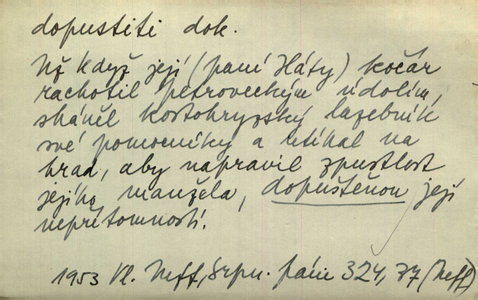 dopustiti dok.
Už když její (paní Háty) kočár
rachotil petroveckým údolím,
sháněl kostohryzský lazebník
své pomocníky a utíkal na
hrad, aby napravil zpustlost
jejího manžela, dopuštěnou její
nepřítomností.
1953 Vl. Neff, Srpn. páni 324, 77 (Neff)